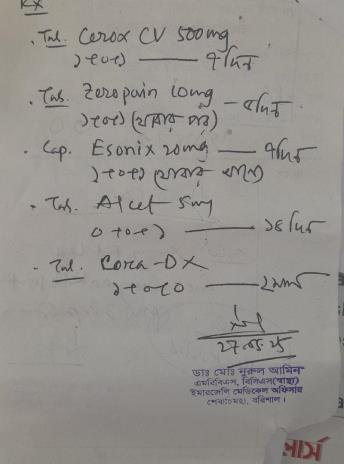 Rx
. Tab. Cerox CV 500mg
১+০+১ —— ৭ দিন
. Tab. Zeropain 10mg — ৫দিন
১+০+১ (খাবার পর)
. Cap. Esonix 20mg — ৭দিন
১+০+১ (খাবার আগে)
. Tab. Alcet 5mg
০+০+১ —— ১৫ দিন
. Tab. Cora-DX
১+০+০ —— ২মাস
ডাঃ মোঃ নুরুল আমিন
এমবিবিএস, বিসিএস(স্বাস্থ্য)
ইমারজেন্সি মেডিকেল অফিসার
শেবাচিমহা, বরিশাল।